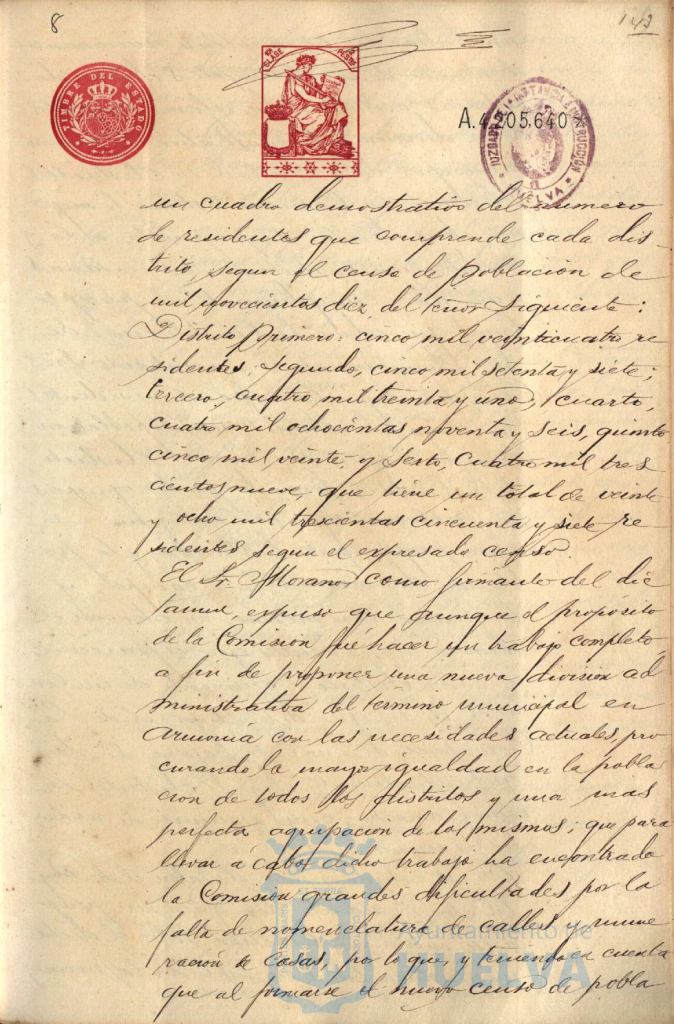 8
143
TIMBRE DEL ESTADO
CLASE
PESETA
A.4.205.640 *
JUZGADO DE 1ª INSTANCIA E INSTRUCCIÓN
HUELVA
un cuadro demostrativo del numero
de residentes que comprende cada dis-
trito, segun el censo de población de
mil novecientos diez, del tenor siguiente:
Distrito Primero: cinco mil veinticuatro re
sidentes, segundo, cinco mil setenta y siete;
tercero, cuatro mil treinta y uno, cuarto,
cuatro mil ochocientas noventa y seis, quinto
cinco mil veinte, y sesto, cuatro mil tres
cientos nueve, que tiene un total de veinte
y ocho mil trescientas cincuenta y siete re-
sidentes segun el expresado censo.
El Sr. Morano, como firmante del dic
tamen, expuso que aunque el propósito
de la Comisión fué hacer un trabajo completo,
a fin de proponer una nueva división ad
ministrativa del término municipal en
armonía con las necesidades actuales, pro
curando la mayor igualdad en la pobla
ción de todos los distritos y una mas
perfecta agrupación de los mismos; que para
llevar á cabo dicho trabajo ha encontrado
la Comisión grandes dificultades por la
falta de nomenclatura de calles y nume
ración de casas, por lo que, y teniendo en cuenta
que al formarse el nuevo censo de pobla
Ayuntamiento de
HUELVA